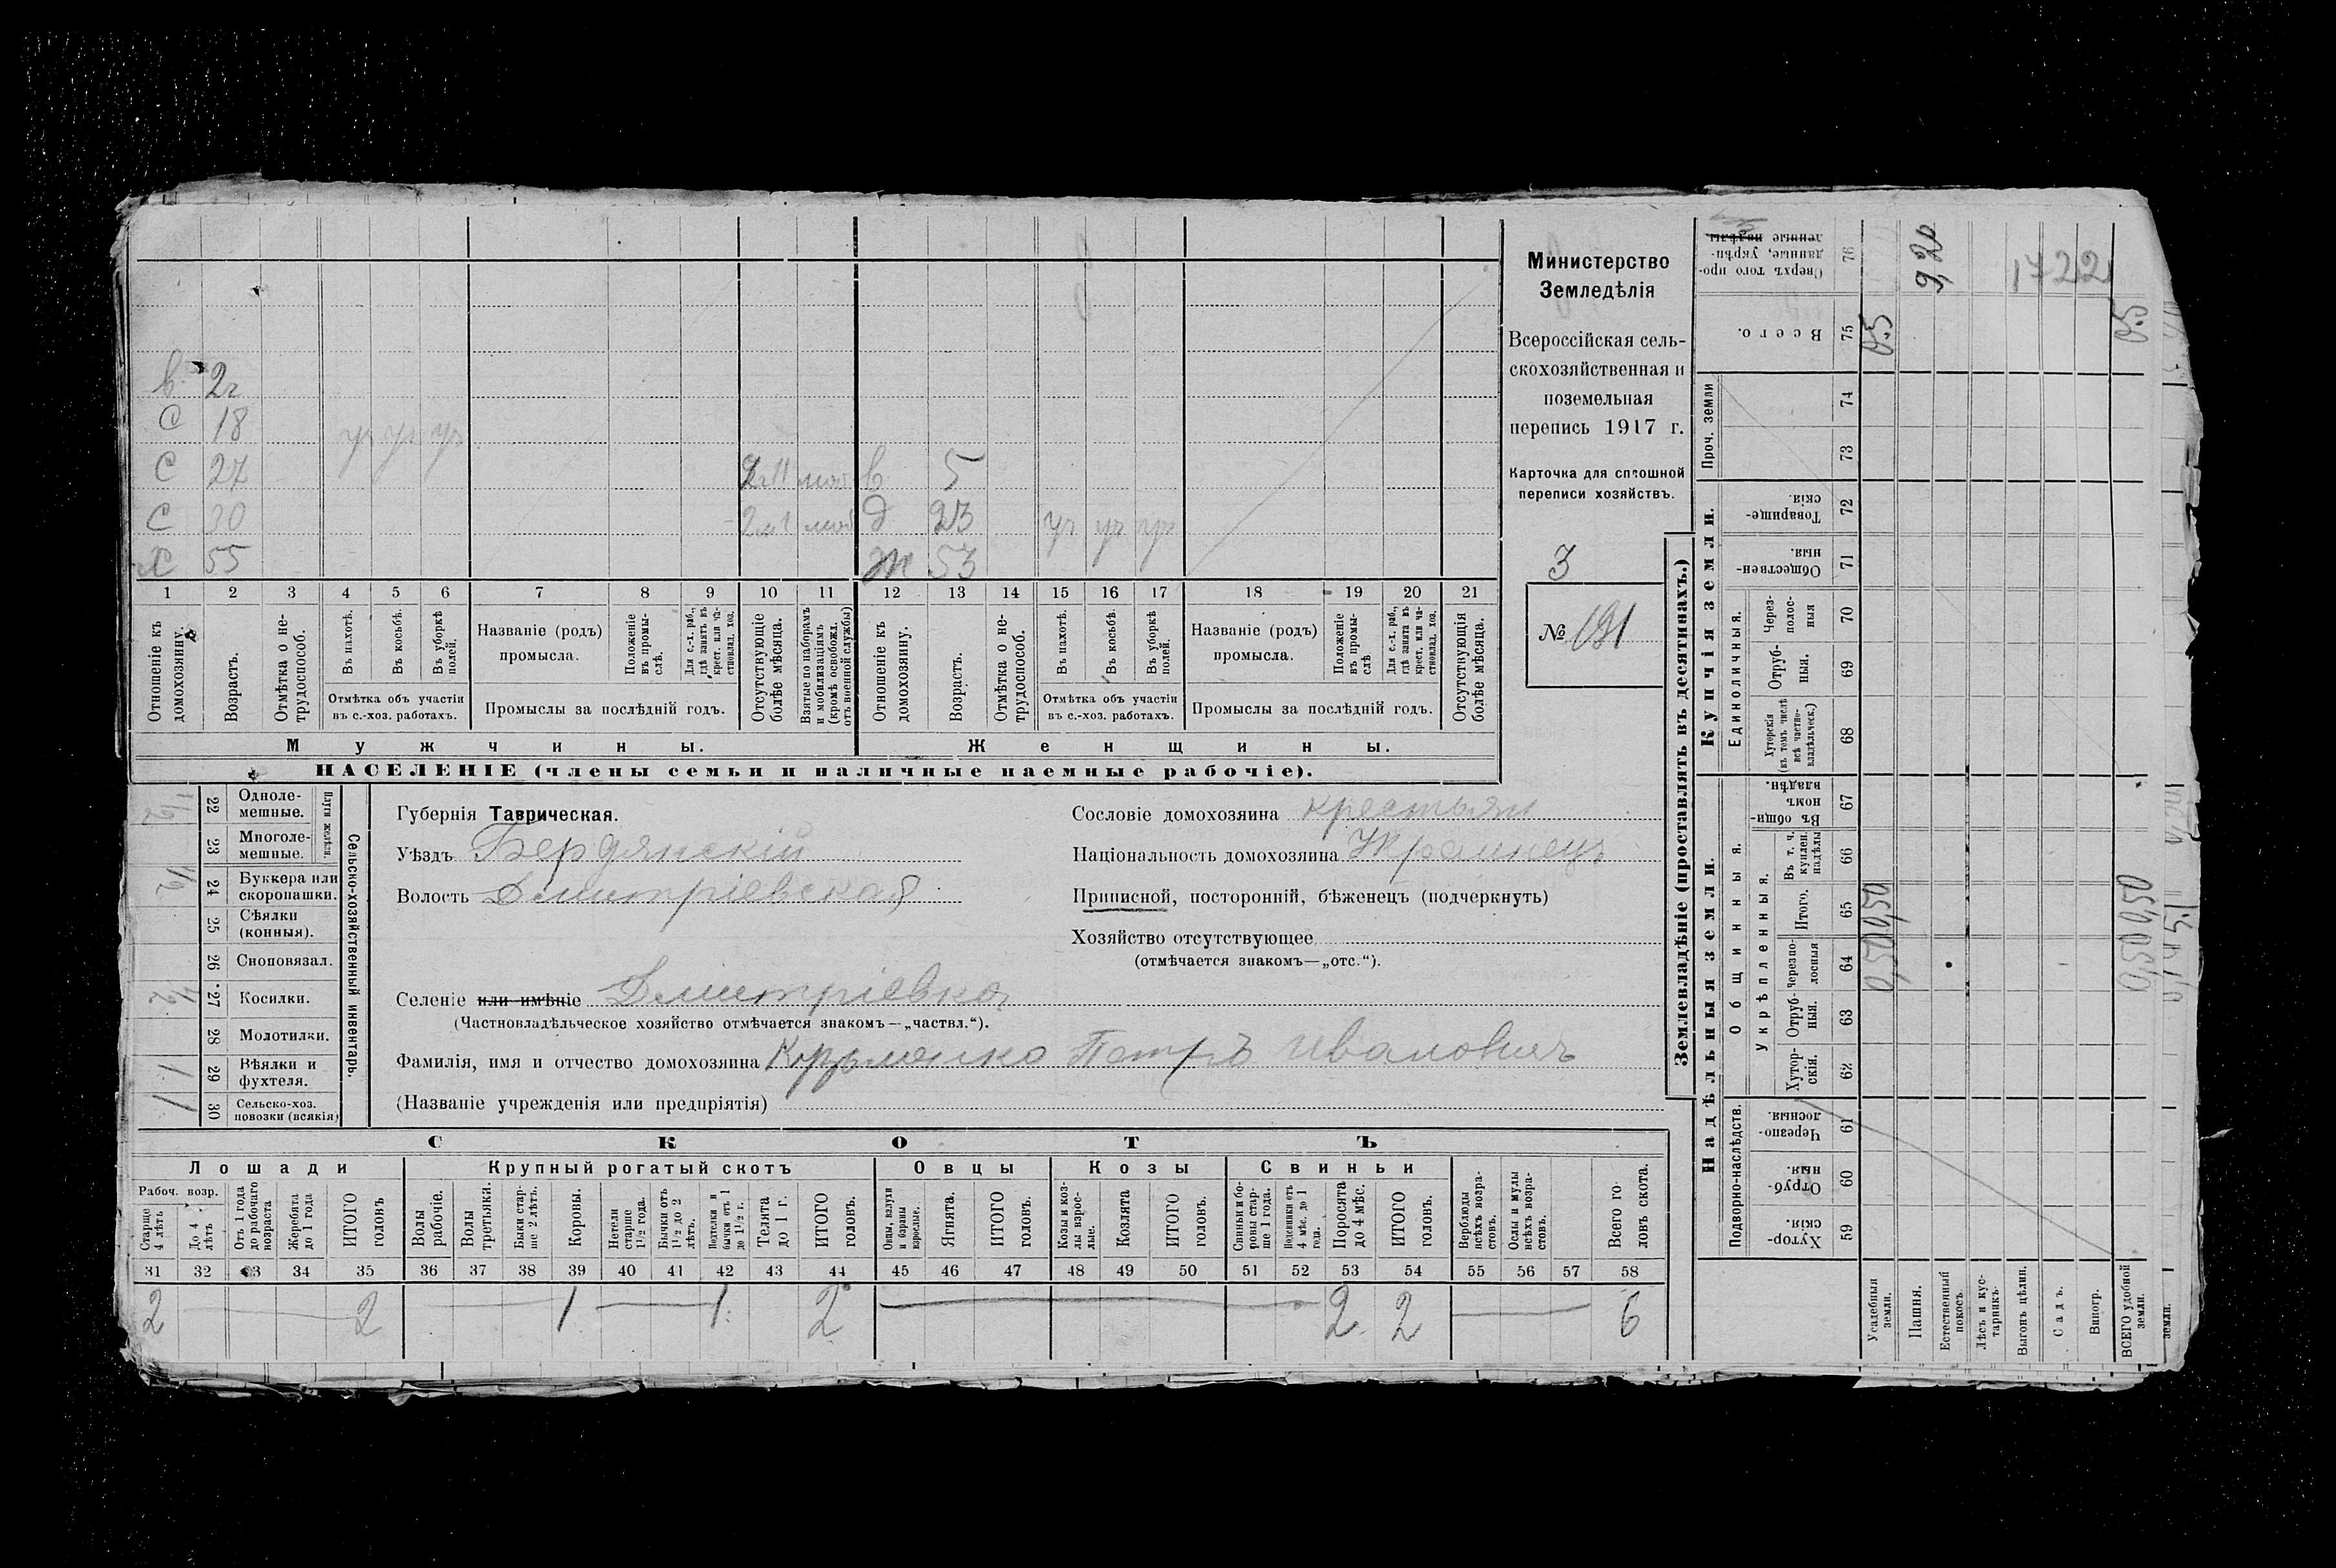 в. 2г
С 18 ус ус ус
С 27 2г11 моб в 5
С 30 2г моб д 23 ус ус ус
Х 55 Ж 53
1 2 3 4 5 6 7 8 9 10 11 12 13 14 15 16 17 18 19 20 21
Отношеніе къ домохозяину.
Возрастъ.
Отмѣтка о нетрудоспособ.
Въ пахотѣ.
Въ косьбѣ.
Въ уборкѣ полей.
Отмѣтка объ участіи въ с.-хоз. работахъ.
Названіе (родъ) промысла.
Положеніе въ промыслѣ.
Для с.-х. раб., гдѣ занятъ въ крест. или частновлад. хоз.
Промыслы за послѣдній годъ.
Отсутствующіе болѣе мѣсяца.
Взятые по наборамъ и мобилизаціямъ (кромѣ освобожд. отъ военной службы)
Отношеніе къ домохозяину.
Возрастъ.
Отмѣтка о нетрудоспособ.
Въ пахотѣ.
Въ косьбѣ.
Въ уборкѣ полей.
Отмѣтка объ участіи въ с.-хоз. работахъ.
Названіе (родъ) промысла.
Положеніе въ промыслѣ
Для с.-х. раб., гдѣ занята въ крест. или частновлад. хоз.
Промыслы за послѣдній годъ.
Отсутствующія болѣе мѣсяца.
Мужчины.
Женщины.
НАСЕЛЕНІЕ (члены семьи и наличные наемные рабочіе).
Министерство
Земледѣлія
Всероссійская сель-
скохозяйственная и
поземельная
перепись 1917 г.
Карточка для сплошной
переписи хозяйствъ.
3
№ 191
22 Одноле-мешные. 1/2
23 Многоле-мешные.
Плуги желѣзн.
24 Буккера или скоропашки. 1/2
25 Сѣялки (конныя).
26 Сноповязал.
27 Косилки. 1/2
28 Молотилки.
29 Вѣялки и фухтеля. 1
30 Сельско-хоз. повозки (всякія) 1
Сельско-хозяйственный инвентарь.
Губернія Таврическая.
Уѣздъ Бердянскій
Волость Дмитріевская
Селеніе или имѣніе Дмитріевка
(Частновладѣльческое хозяйство отмѣчается знакомъ—„частвл.“).
Фамилія, имя и отчество домохозяина Кузьменко Петръ Ивановичъ
(Названіе учрежденія или предпріятія)
Сословіе домохозяина крестьян
Національность домохозяина Украинецъ
Приписной, посторонній, бѣженецъ (подчеркнуть)
Хозяйство отсутствующее
(отмѣчается знакомъ—„отс.“).
СКОТЪ
Лошади Крупный рогатый скотъ Овцы Козы Свиньи
Рабоч. возр.
Старше 4 лѣтъ
До 4 лѣтъ
Отъ 1 года до рабочаго возраста
Жеребята до 1 года
ИТОГО головъ
Волы рабочіе.
Волы третьяки.
Быки старше 2 лѣтъ.
Коровы.
Нетели старше 1½ года.
Бычки отъ 1½ до 2 лѣтъ.
Подтелки и бычки отъ 1 до 1½ г.
Телята до 1 г.
ИТОГО головъ.
Овцы, валухи и бараны взрослые.
Ягнята.
ИТОГО головъ.
Козы и козлы взрослые.
Козлята
ИТОГО головъ.
Свиньи и боровы старше 1 года.
Подсвинки отъ 4 мѣс. до 1 года.
Поросята до 4 мѣс.
ИТОГО головъ.
Верблюды всѣхъ возрастовъ.
Ослы и мулы всѣхъ возрастовъ.
Всего головъ скота.
31 32 33 34 35 36 37 38 39 40 41 42 43 44 45 46 47 48 49 50 51 52 53 54 55 56 57 58
2 2 1 1 2 2 2 6
Землевладѣніе (проставлять въ десятинахъ.)
Надѣльныя земли.
Купчія земли.
Проч. земли
Подворно-наслѣдств.
Общинныя.
Укрѣпленныя.
Единоличныя.
Хутор-скія. 59
Отруб-ныя. 60
Черезпо-лосныя. 61
Хутор-скія. 62
Отруб-ныя. 63
Черезпо-лосныя 64
Итого. 65
Въ т. ч. куплен. надѣлы 66
Въ общин-номъ владѣн. 67
Хуторскія (въ томъ числѣ всѣ частно-владѣльческ.) 68
Отруб-ныя. 69
Через-полос-ныя 70
Обществен-ныя. 71
Товарище-скія. 72
73
74
Всего. 75
Сверхъ того про-данные, укрѣп-ленные надѣлы 76
Усадебныя земли. 0,50 0,50 0,5
Пашня. 9,20
Естественный покосъ.
Лѣсъ и кус-тарникъ.
Выгонъ цѣлин.
Садъ.
Виногр.
ВСЕГО удобной земли. 0,50 0,50 0,5
земли.
1722